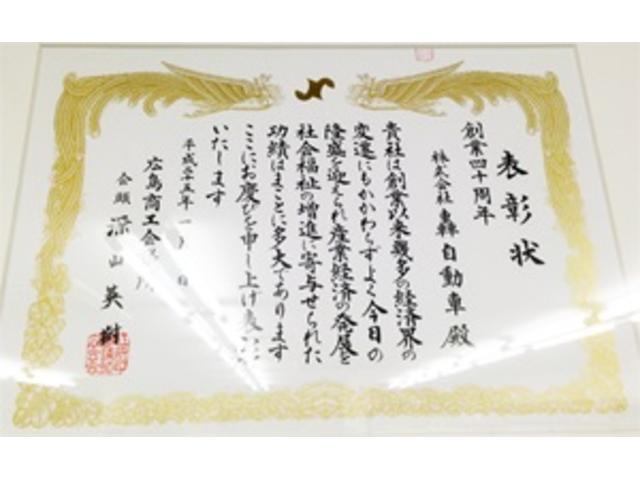 表彰状
創業四十周年
株式会社 轟自動車 殿
貴社は創業以来幾多の経済界の
変遷にもかかわらずよく今日の
隆盛を迎えられ産業経済の発展と
社会福祉の増進に寄与せられた
功績はまことに多大であります
ここにお慶びを申し上げ表
いたします
平成二十五年一月 日
広島商工会
会頭 深山英樹